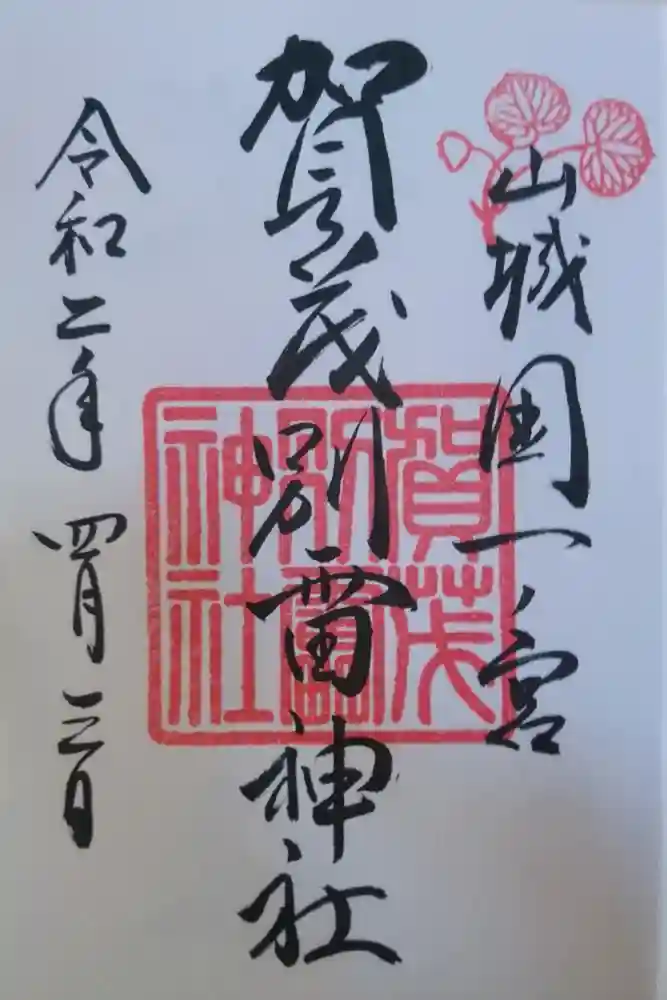 山城国一ノ宮
賀茂別雷神社
令和二年四月三日
賀茂
別雷
神社